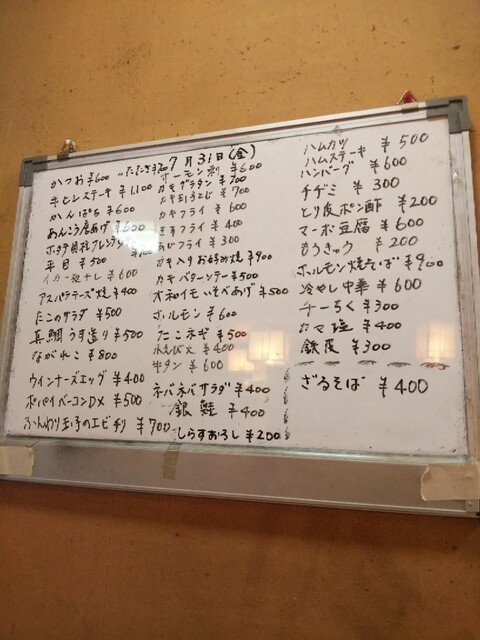 7月31日(金)
かつお ¥600
牛ヒレステーキ ¥1,100
かんぱち ¥600
あんこう唐げ ¥600
ホタテ貝柱
平目 ¥500
イカ ¥600
アスパラチーズ焼 ¥400
たこのサラダ ¥500
真鯛うす造り ¥500
ながれこ ¥800
ウインナーズエッグ ¥400
ポパイベーコンDX ¥500
ふんわり玉子のエビチリ ¥700
ホーモン刺 ¥600
カキグラタン ¥700
¥700
カキフライ ¥600
きすフライ ¥400
あじフライ ¥300
カキ入りお好み焼 ¥900
カキバターソテー ¥500
大和イモいそべあげ ¥500
ホルモン ¥600
たこネギ ¥500
¥400
牛タン ¥600
ネバネバサラダ ¥400
銀鮭 ¥400
しらすおろし ¥200
ハムカツ
ハムステーキ ¥500
ハンバーグ ¥600
チヂミ ¥300
とり皮ポン酢 ¥200
マーボ豆腐 ¥600
もろきゅう ¥200
ホルモン焼そば ¥900
冷やし中華 ¥600
チーちく ¥300
カマ塩 ¥400
鉄皮 ¥300
ざるそば ¥400